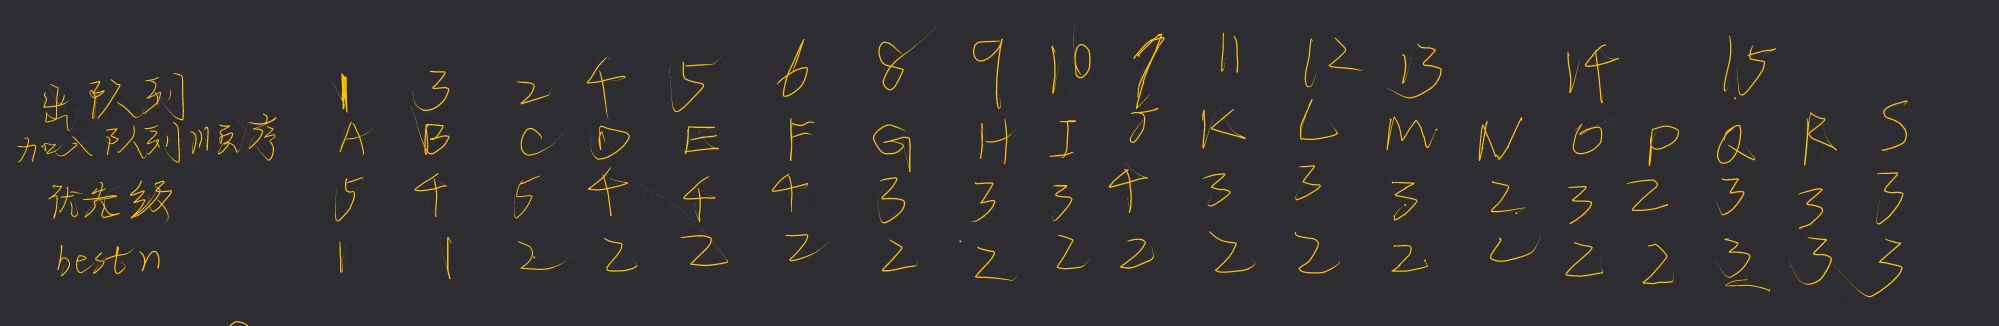 出队列 1 3 2 4 5 6 8 9 10 7 11 12 13 14 15
加入队列顺序 A B C D E F G H I J K L M N O P Q R S
优先级 5 4 5 4 4 4 3 3 3 4 3 3 3 2 3 2 3 3 3
bestn 1 1 2 2 2 2 2 2 2 2 2 2 2 2 2 2 3 3 3